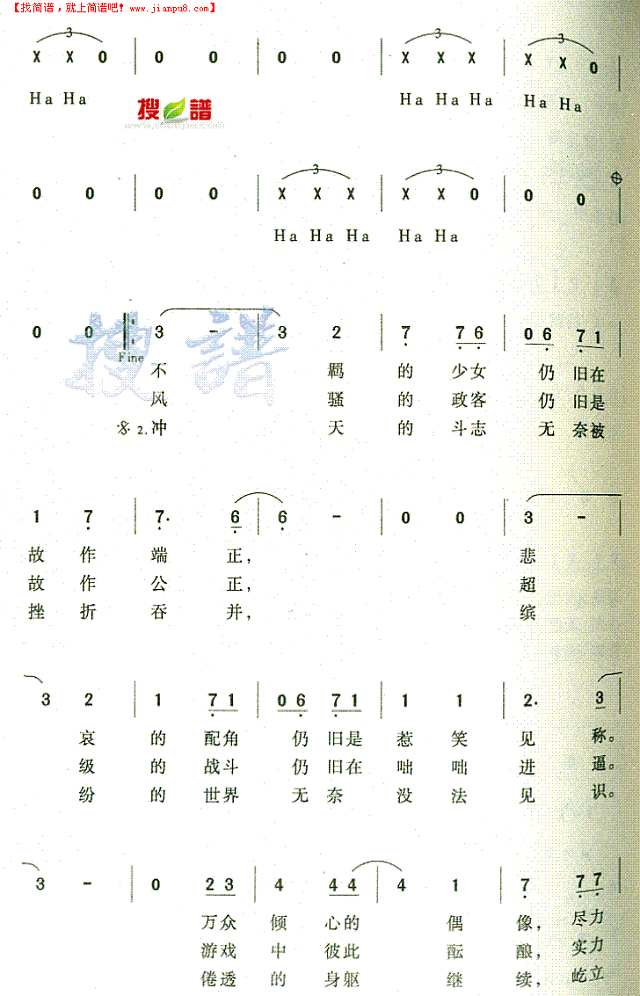 【找简谱，就上简谱吧! www.jianpu8.com】
3 3
X X 0 | 0 0 | 0 0 | X X X | X X 0
Ha Ha Ha Ha Ha Ha Ha
搜 譜
3 3
0 0 | 0 0 | X X X | X X 0 | 0 0
Ha Ha Ha Ha Ha
0 0 3 - | 3 2 | 7 7 6 | 0 6 7 1
Fine
搜譜
不 羁 的 少女 仍 旧在
风 骚 的 政客 仍 旧是
2.冲 天 的 斗志 无 奈被
1 7 | 7. 6 | 6 - | 0 0 | 3 -
故 作 端 正, 悲
故 作 公 正, 超
挫 折 吞 并, 缤
3 2 | 1 7 1 | 0 6 7 1 | 1 1 | 2. 3
哀 的 配角 仍 旧是 惹 笑 见 称。
级 的 战斗 仍 旧在 咄 咄 进 逼。
纷 的 世界 无 奈 没 法 见 识。
3 - | 0 2 3 | 4 4 4 | 4 1 | 7 7 7
万众 倾 心的 偶 像, 尽力
游戏 中 彼此 酝 酿, 实力
倦透 的 身躯 继 续, 屹立